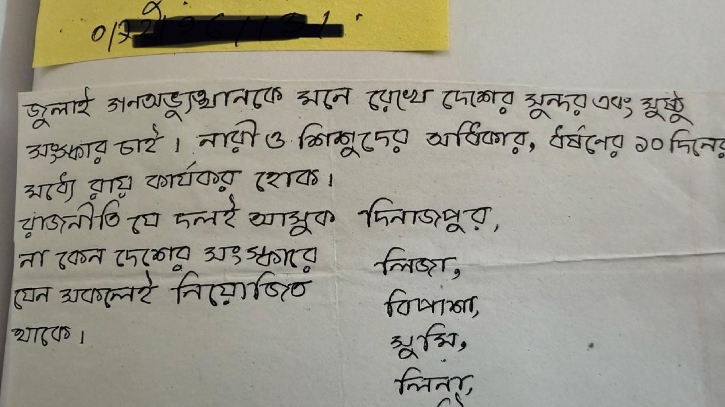 জুলাই গনঅভ্যুত্থানকে মনে রেখে দেশের সুন্দর এবং সুষ্ঠু
সংস্কার চাই। নারী ও শিশুদের অধিকার, ধর্ষনের ১০ দিনের
মধ্যে রায় কার্যকর হোক।
রাজনীতি যে দলই আসুক
না কেন দেশের সংস্কারে
যেন সকলেই নিয়োজিত
থাকে।
দিনাজপুর,
লিজা,
বিপাশা,
সুমি,
লিনা,